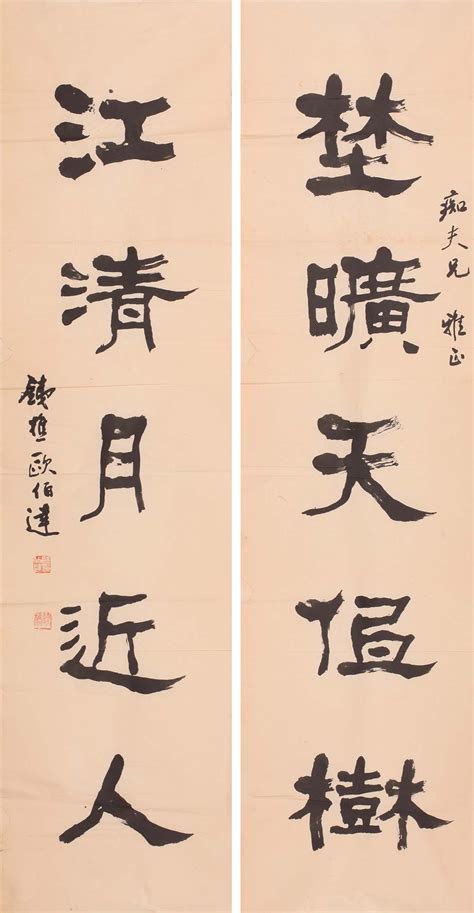 痴夫兄 雅正
埜曠天低樹
江清月近人
鐵樵歐伯達